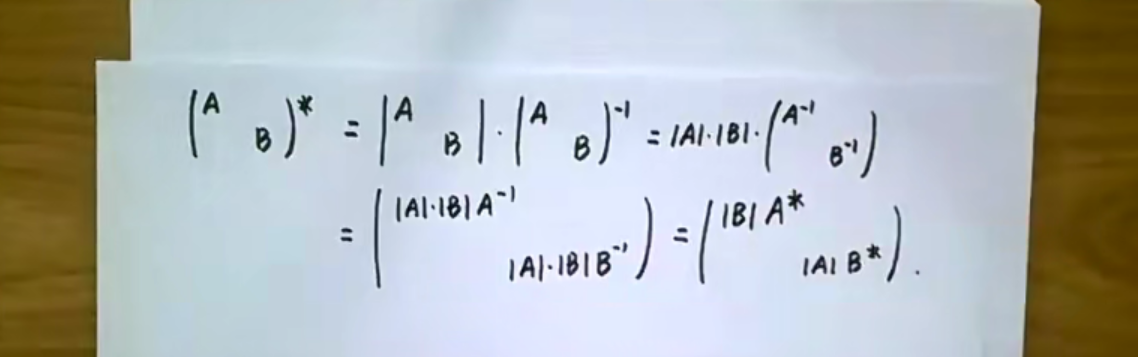 (A B)* = |A B| · (A B)⁻¹ = |A|·|B|·(A⁻¹ B⁻¹)
= (|A|·|B| A⁻¹ |A|·|B| B⁻¹) = (|B| A* |A| B*).